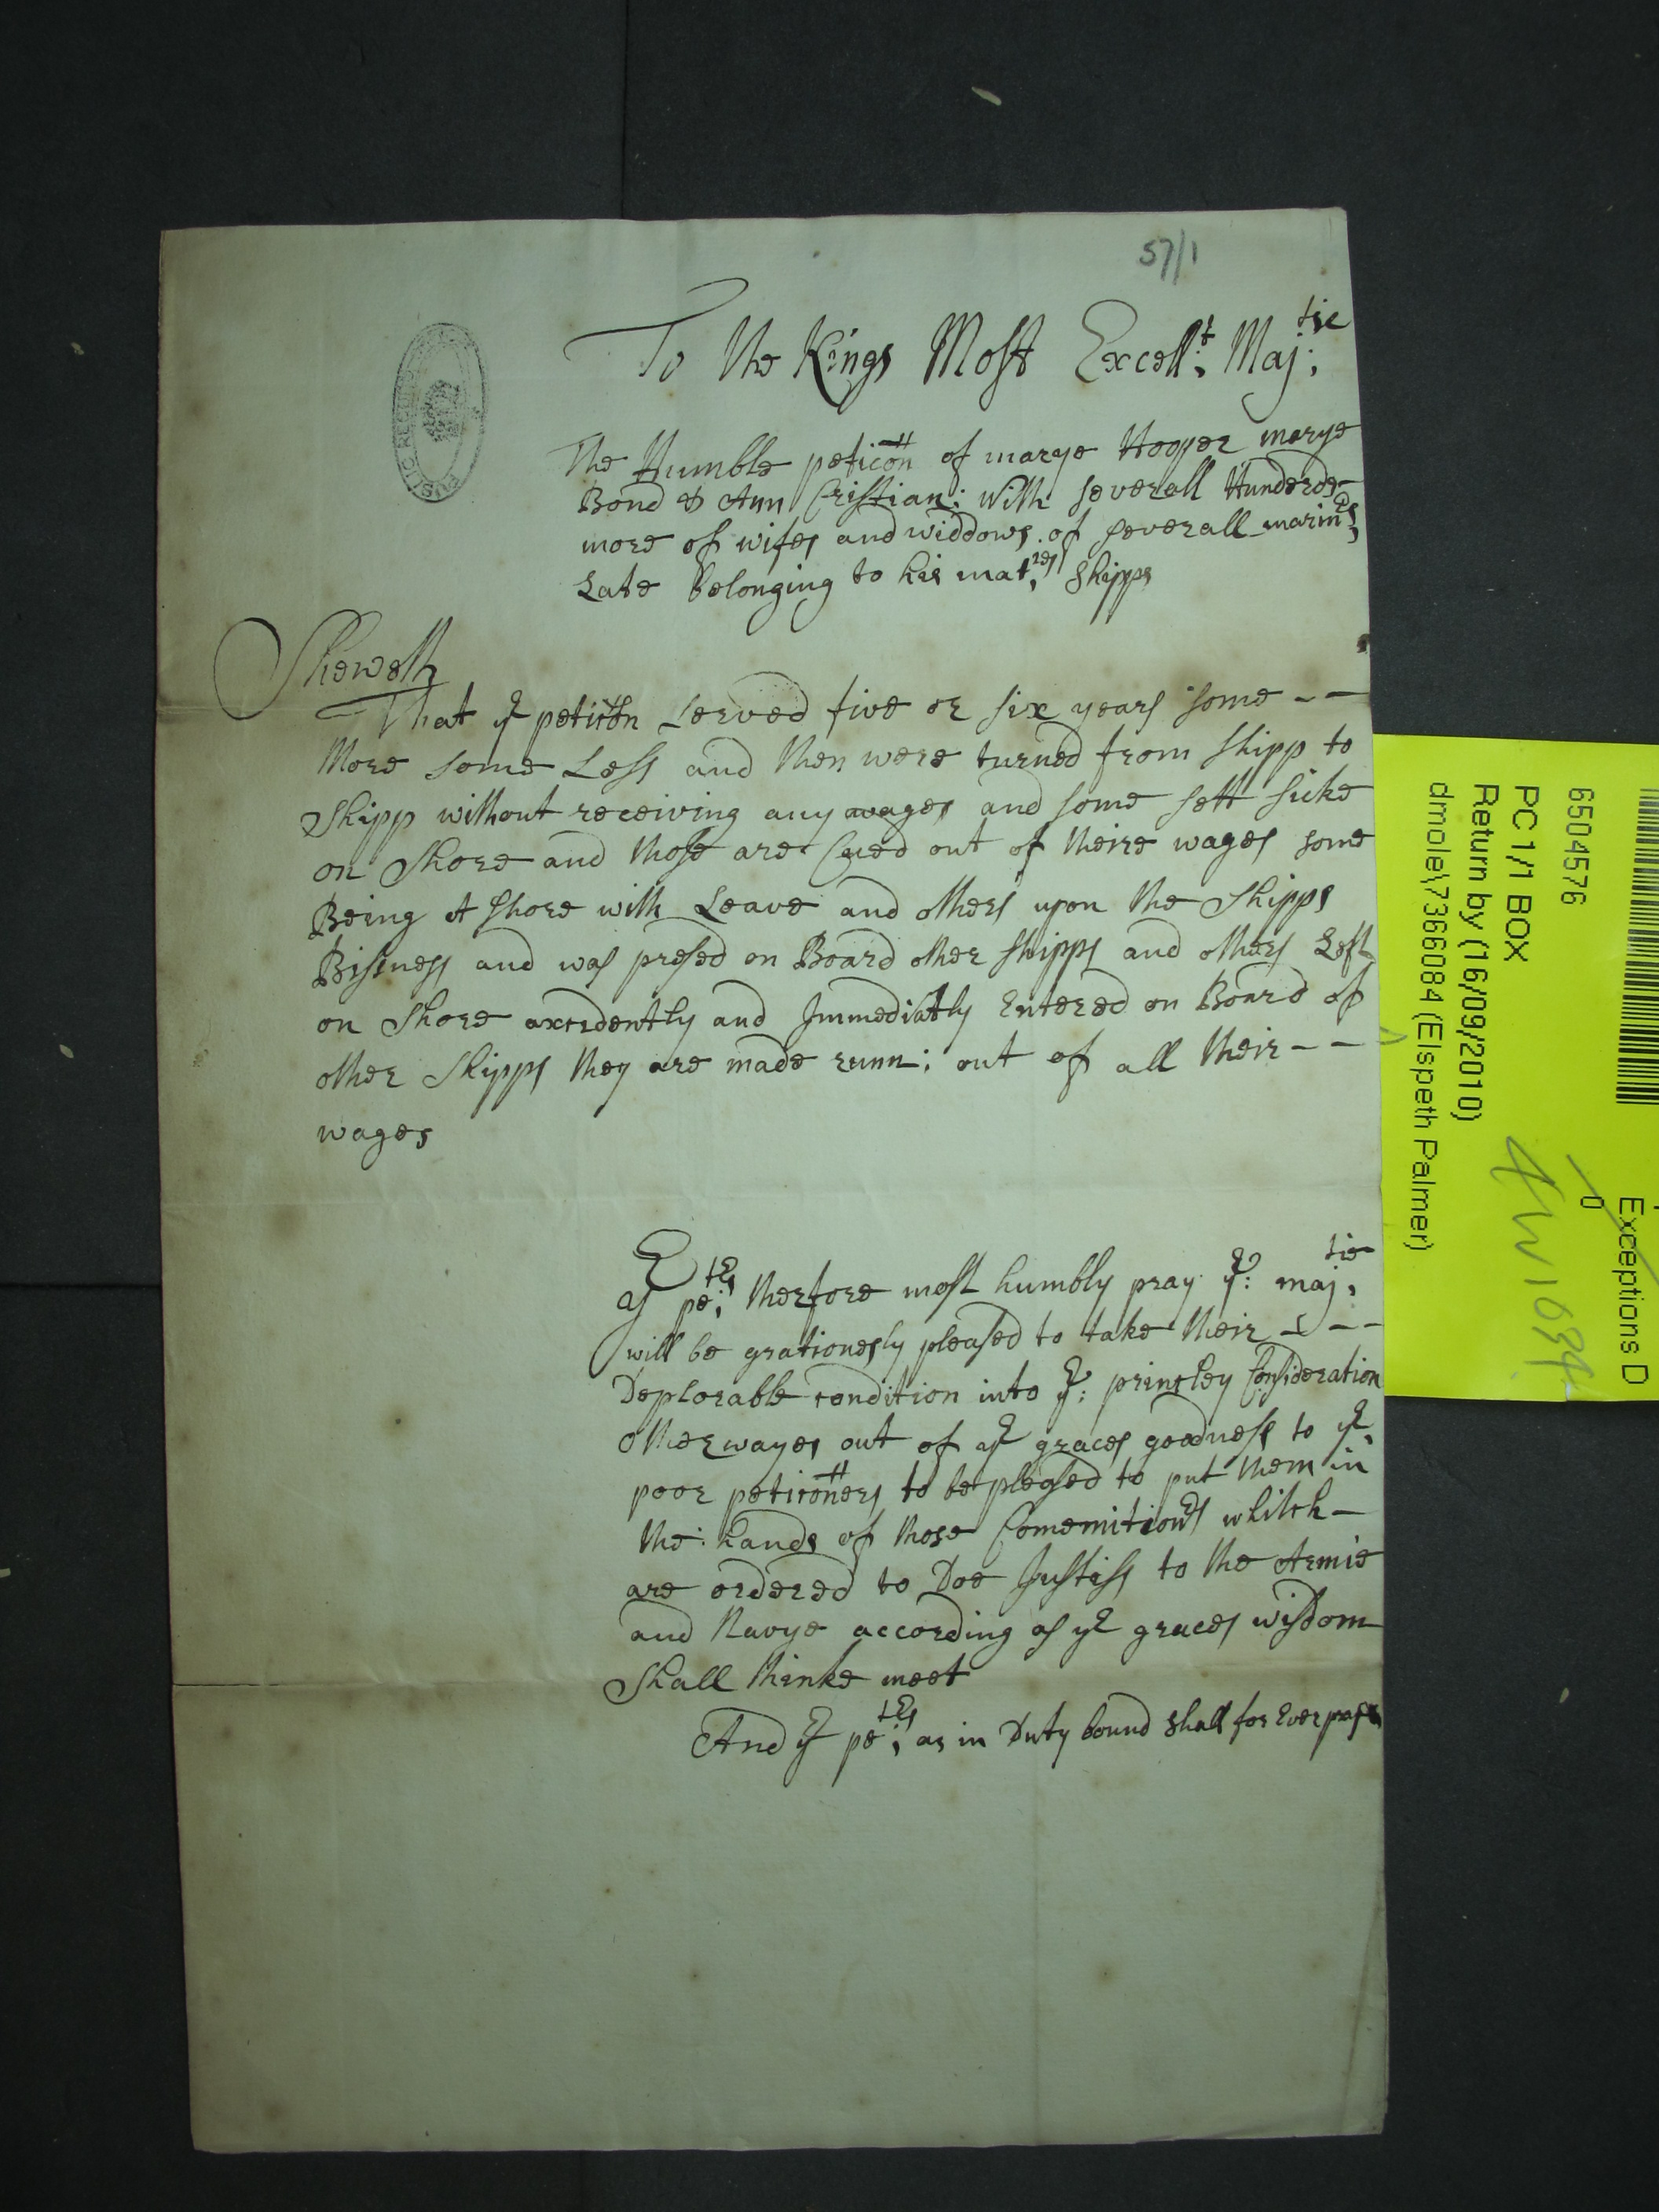 57/1
To the Kings Most Excell:t Maj:tie
The Humble peticon of marye Hooper marye
Bond & Ann Cristian: with severall Hunderds
more of wifes and widdows of severall marinrs
Late belonging to his mat:ies Shipps
Sheweth
That yr peticon served five or six years some --
More some Less and then were turned from shipp to
Shipp without receiving any wages and some sett sicke
on Shore and those are Qued out of theire wages some
Being A shore with Leave and others upon the Shipps
Bissness and was presed on Board other shipps and others Left
on Shore axcidently and Immediatly Entered on Board of
other Shipps they are made runn: out of all their --
wages
Yr pe:trs therfore most humbly pray yr: maj:tie
will be grationesly pleased to take their ---
Deplorable condition into yr: princley Consideration
otherwayes out of yr graces goodness to yr.
poor peticoners to be pleased to put them in
the hands of those Comemitions whilch -
are ordered to Doe Justiss to the Armie
and Navye according as yr graces wisdom
Shall thinke meet
And yr pe:trs as in Duty bound shall for Ever pray
PUBLIC RECORD
Exceptions D
0
65045576
PC 1/1 BOX
Return by (16/09/2010)
dmole\7366084 (Elspeth Palmer)